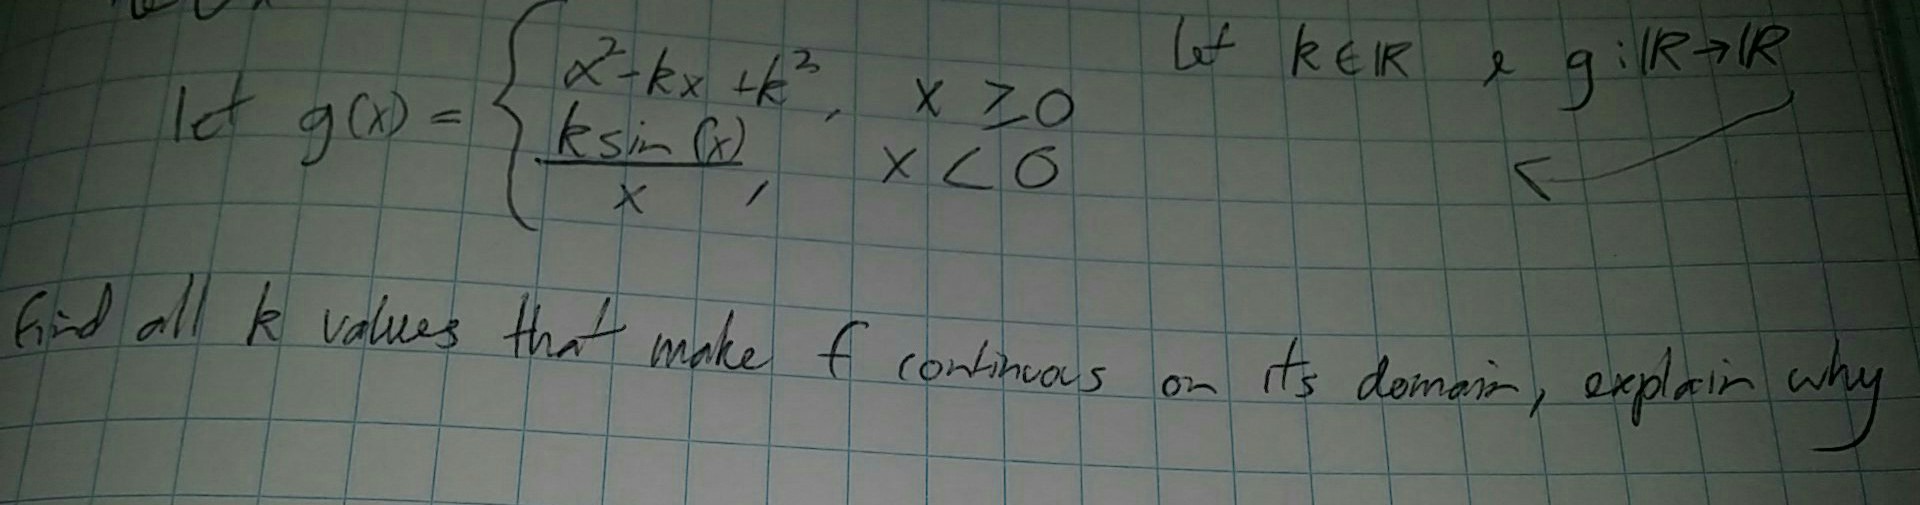 let g(x) = { x² - kx + k², x ≥ 0
k sin(x) / x, x < 0
Let k ∈ ℝ & g : ℝ → ℝ
find all k values that make f continuous on its domain, explain why